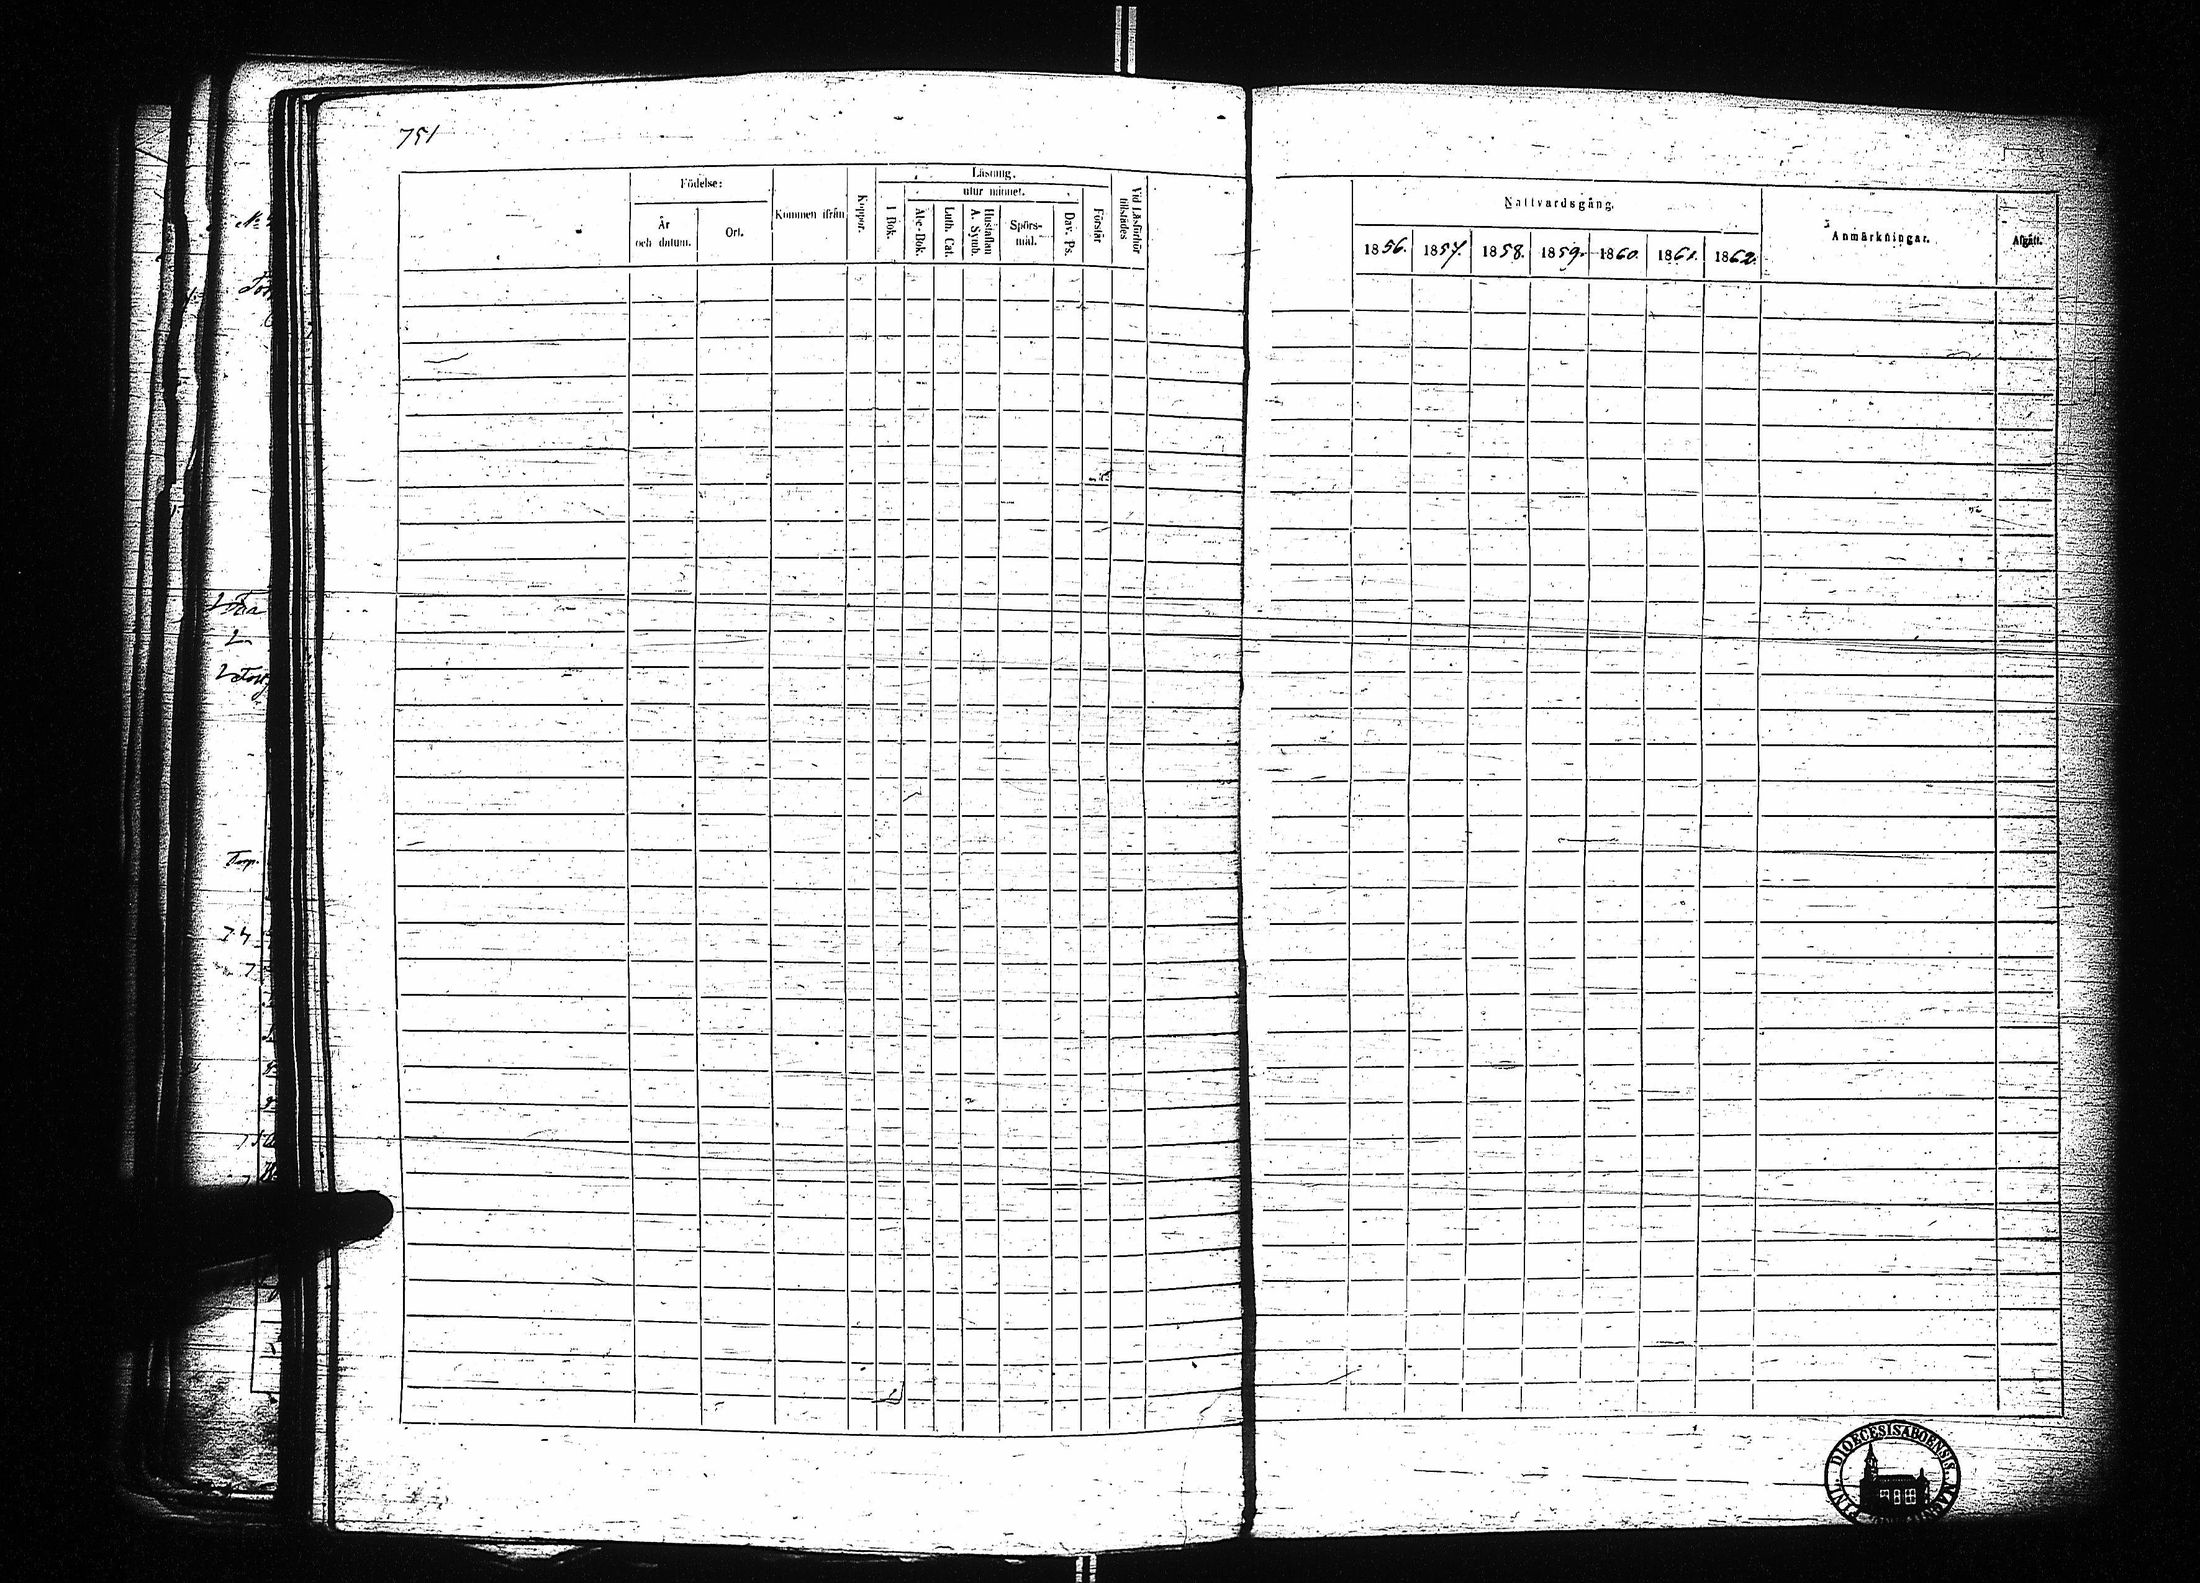 751
Födelse:
År
och datum.
Ort.
Kommen ifrån
Koppor.
Läsning.
utur minnet.
I Bok.
Abc-Bok.
Luth. Cat.
Hustaflan
A. Symb.
Spörs-
mål.
Dav. Ps.
Förstår
Vid Läsförhör
tillstädes
Nattvardsgång.
1856. 1857. 1858. 1859. 1860. 1861. 1862.
Anmärkningar.
Afgått.
Torp.
DIOECESIS ABOENSIS.